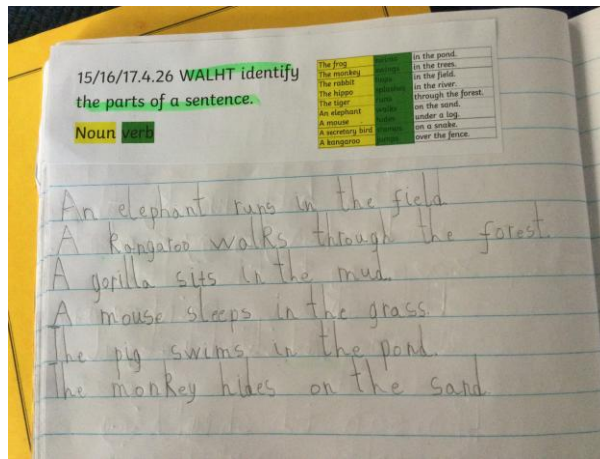 15/16/17.4.26 WALHT identify
the parts of a sentence.
Noun verb
The frog swims in the pond.
The monkey swings in the trees.
The rabbit hops in the field.
The hippo splashes in the river.
The tiger runs through the forest.
An elephant walks on the sand.
A mouse hides under a log.
A secretary bird stamps on a snake.
A kangaroo jumps over the fence.
An elephant runs in the field
A kangaroo walks through the forest.
A gorilla sits in the mud.
A mouse sleeps in the grass.
The pig swims in the pond.
The monkey hides on the sand